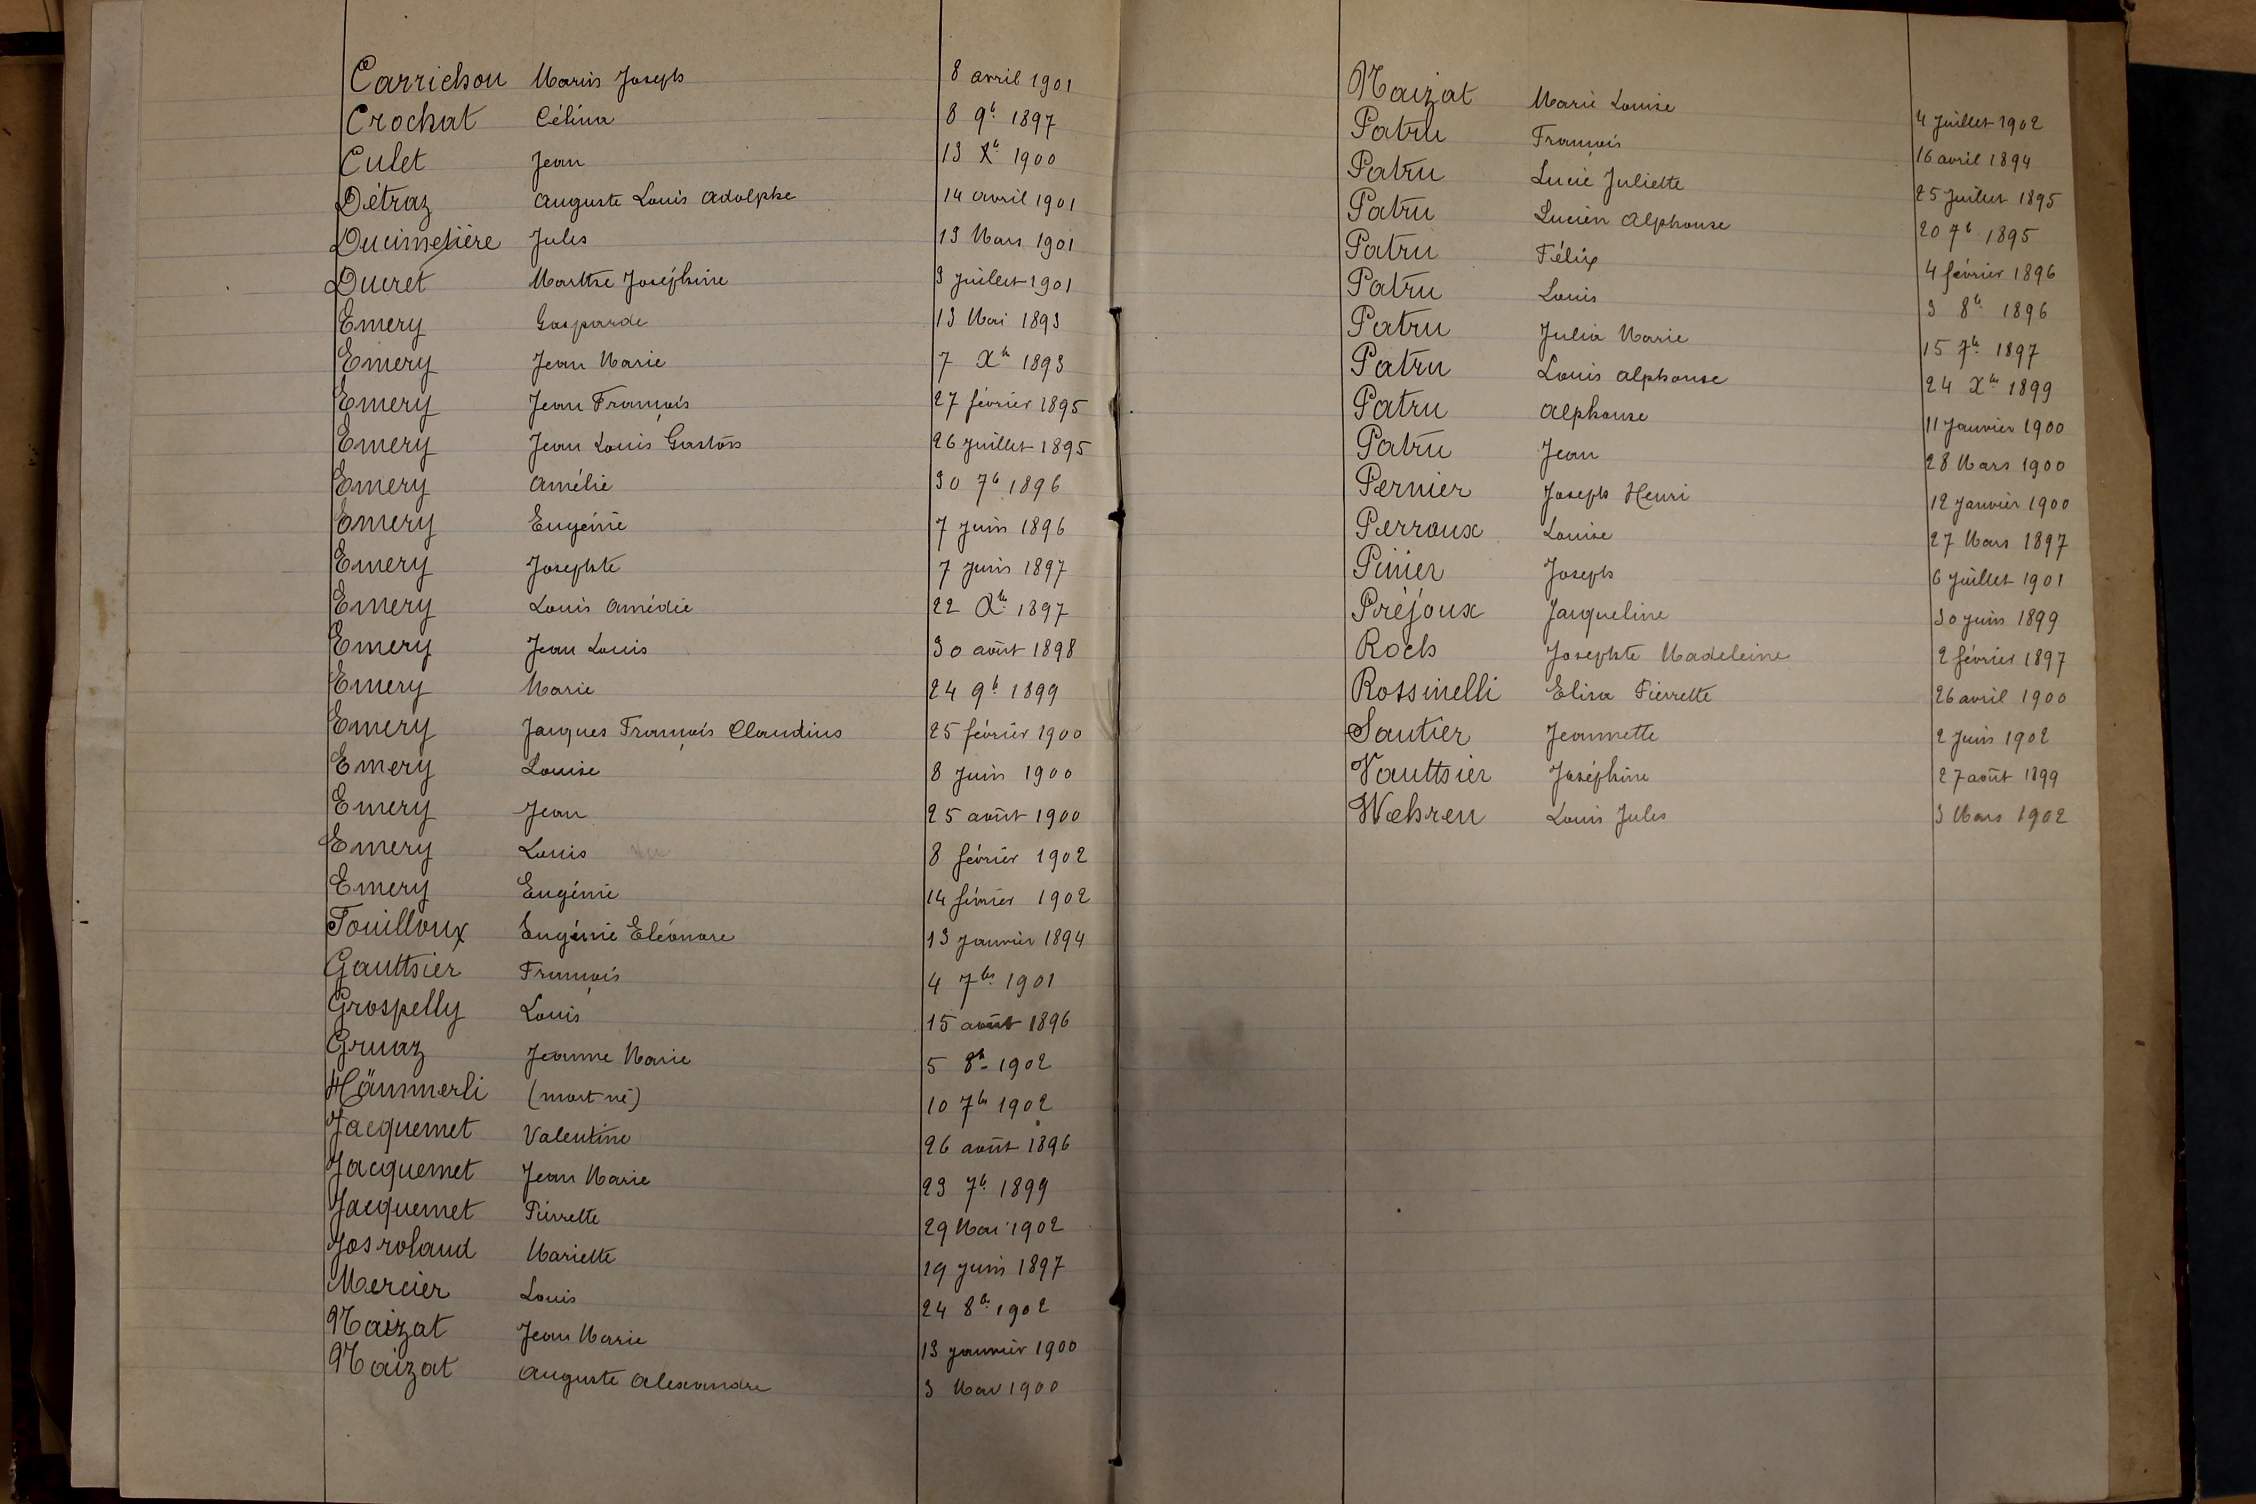 Carrichon Marius Joseph 8 avril 1901
Crochat Célina 8 9b 1897
Culet Jean 13 Xb 1900
Détraz Auguste Louis Adolphe 14 avril 1901
Ducimetière Jules 13 Mars 1901
Ducret Marthe Joséphine 3 juillet 1901
Emery Gasparde 13 Mai 1893
Emery Jean Marie 7 Xbre 1893
Emery Jean François 27 février 1895
Emery Jean Louis Gaston 26 juillet 1895
Emery Amélie 30 7b 1896
Emery Eugénie 7 juin 1896
Emery Josephte 7 juin 1897
Emery Louis Amédée 22 Xbre 1897
Emery Jean Louis 30 août 1898
Emery Marie 24 9b 1899
Emery Jacques François Claudius 25 février 1900
Emery Louise 8 juin 1900
Emery Jean 25 août 1900
Emery Louis 8 février 1902
Emery Eugénie 14 février 1902
Fouilloux Eugénie Eléonore 13 janvier 1894
Gauthier François 4 7bre 1901
Grospelly Louis 15 août 1896
Gruaz Jeanne Marie 5 8b 1902
Hämmerli (mort né) 10 7bre 1902
Jacquemet Valentine 26 août 1896
Jacquemet Jean Marie 23 7b 1899
Jacquemet Pierrette 29 Mai 1902
Josroland Mariette 19 juin 1897
Mercier Louis 24 8b 1902
Naizat Jean Marie 13 janvier 1900
Naizat Auguste Alexandre 3 1900
Naizat Marie Louise 4 juillet 1902
Patru François 16 avril 1894
Patru Lucie Juliette 25 juillet 1895
Patru Lucien Alphonse 20 7b 1895
Patru Félix 4 février 1896
Patru Louis 3 8b 1896
Patru Julia Marie 15 7b 1897
Patru Louis Alphonse 24 Xbre 1899
Patru Alphonse 11 janvier 1900
Patru Jean 28 Mars 1900
Pernier Joseph Henri 12 janvier 1900
Perroux Louise 27 Mars 1897
Pinier Joseph 6 juillet 1901
Préjoux Jacqueline 30 juin 1899
Roch Josephte Madeleine 2 février 1897
Rossinelli Elisa Pierrette 26 avril 1900
Sautier Jeannette 2 juin 1902
Vauthier Joséphine 27 août 1899
Wæhren Louis Jules 3 Mars 1902